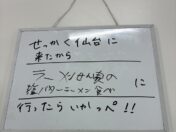 せっかく仙台に
来たから
ラーメン せん家の
塩バターラーメン 食べ に
行ったらいかっぺ!!